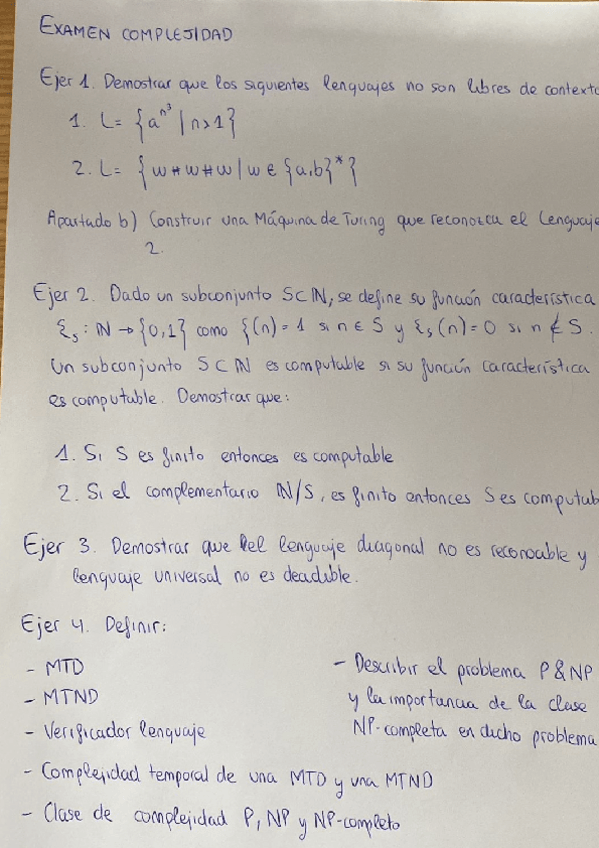 EXAMEN COMPLEJIDAD
Ejer 1. Demostrar que los siguientes lenguajes no son libres de contexto
1. L= {a^n³ | n>1}
2. L= {w#w#w | w ∈ {a,b}*}
Apartado b) Construir una Máquina de Turing que reconozca el Lenguaje
2.
Ejer 2. Dado un subconjunto S⊂ℕ, se define su función característica
ξs: ℕ → {0,1} como ξ(n)=1 si n ∈ S y ξs(n)=0 si n ∉ S.
Un subconjunto S⊂ℕ es computable si su función característica
es computable. Demostrar que:
1. Si S es finito entonces es computable
2. Si el complementario ℕ/S, es finito entonces S es computab
Ejer 3. Demostrar que el lenguaje diagonal no es reconocible y
lenguaje universal no es decidible.
Ejer 4. Definir:
- MTD
- MTND
- Verificador lenguaje
- Complejidad temporal de una MTD y una MTND
- Clase de complejidad P, NP y NP-completo
- Describir el problema P & NP
y la importancia de la clase
NP-completa en dicho problema